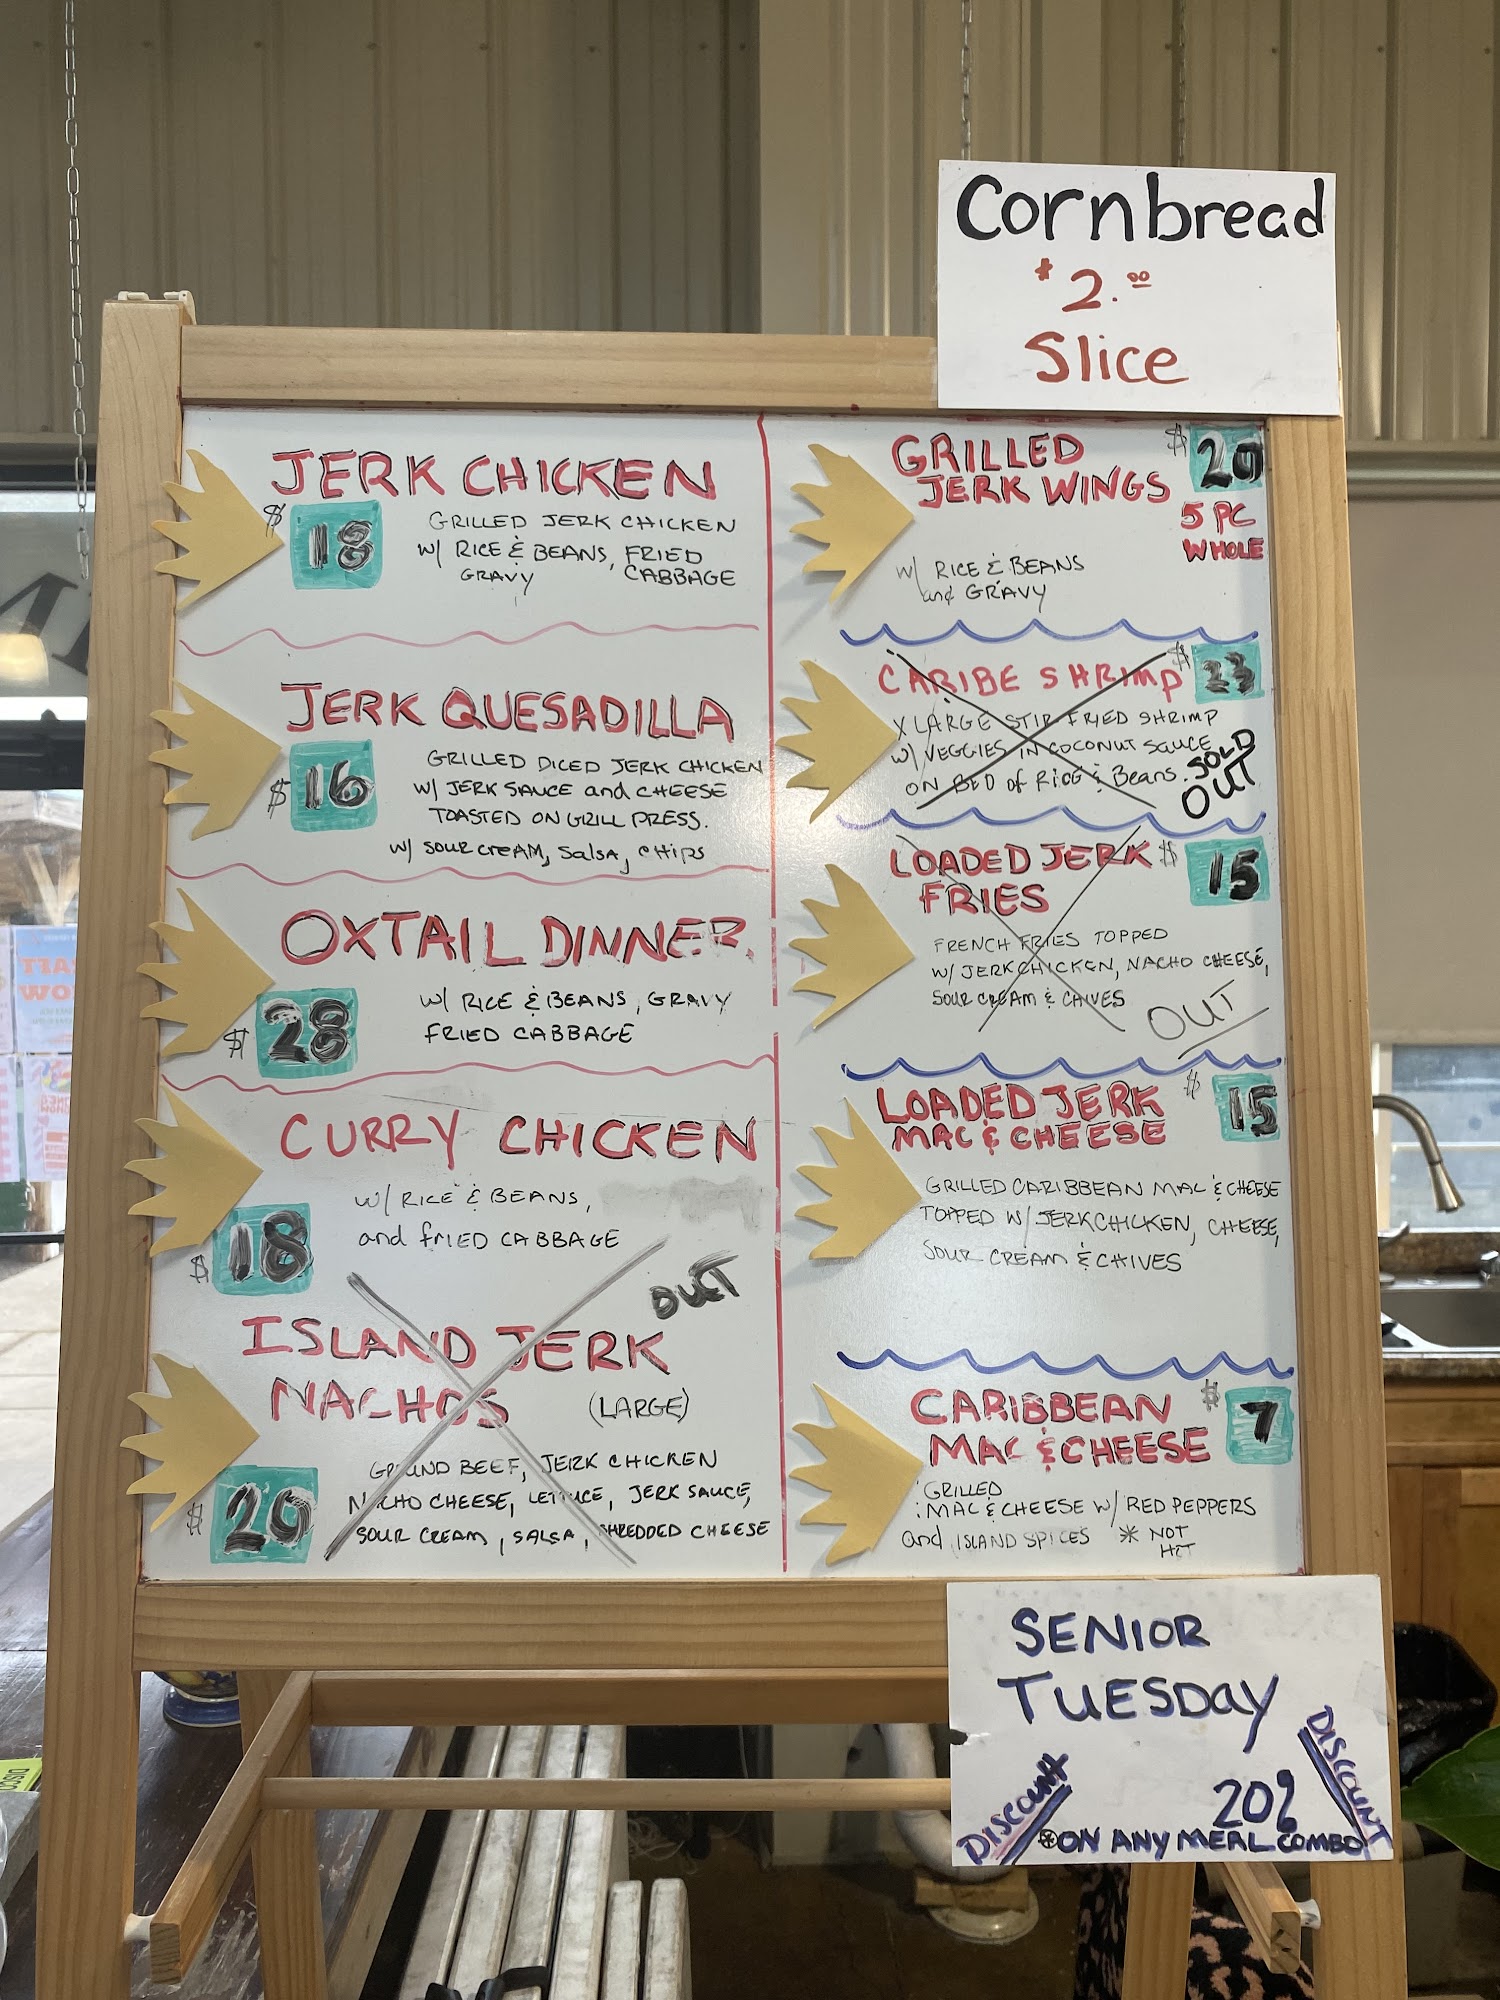 Cornbread
$2.00
Slice
JERK CHICKEN
$18
GRILLED JERK CHICKEN
W/ RICE & BEANS, FRIED
GRAVY CABBAGE
JERK QUESADILLA
$16
GRILLED DICED JERK CHICKEN
W/ JERK SAUCE and CHEESE
TOASTED ON GRILL PRESS.
W/ SOUR CREAM, SalsA, CHIPS
OXTAIL DINNER
$28
W/ RICE & BEANS, GRAVY
FRIED CABBAGE
CURRY CHICKEN
$18
W/ RICE & BEANS,
and fRIED CABBAGE
OUT
ISLAND JERK
NACHOS (LARGE)
$20
GROUND BEEF, JERK CHICKEN
NACHO CHEESE, LETTUCE, JERK SAUCE,
SOUR CREAM, SALSA, SHREDDED CHEESE
GRILLED $20
JERK WINGS
5 PC
WHOLE
W/ RICE & BEANS
and GRAVY
CARIBE SHRIMP $23
X LARGE STIR FRIED SHRIMP
W/ VEGGIES IN COCONUT SAUCE
ON BED of RiCE & Beans.
SOLD
OUT
LOADED JERK $15
FRIES
FRENCH FRIES TOPPED
W/ JERK CHICKEN, NACHO CHEESE,
SOUR CREAM & CHIVES
OUT
LOADED JERK $15
MAC & CHEESE
GRILLED CARIBBEAN MAC & CHEESE
TOPPED W/ JERK CHICKEN, CHEESE,
SOUR CREAM & CHIVES
CARIBBEAN $7
MAC & CHEESE
GRILLED
MAC & CHEESE W/ RED PEPPERS
and ISLAND SPICES * NOT
HOT
SENIOR
TUESDAY
DISCOUNT
20%
DISCOUNT
*ON ANY MEAL COMBO